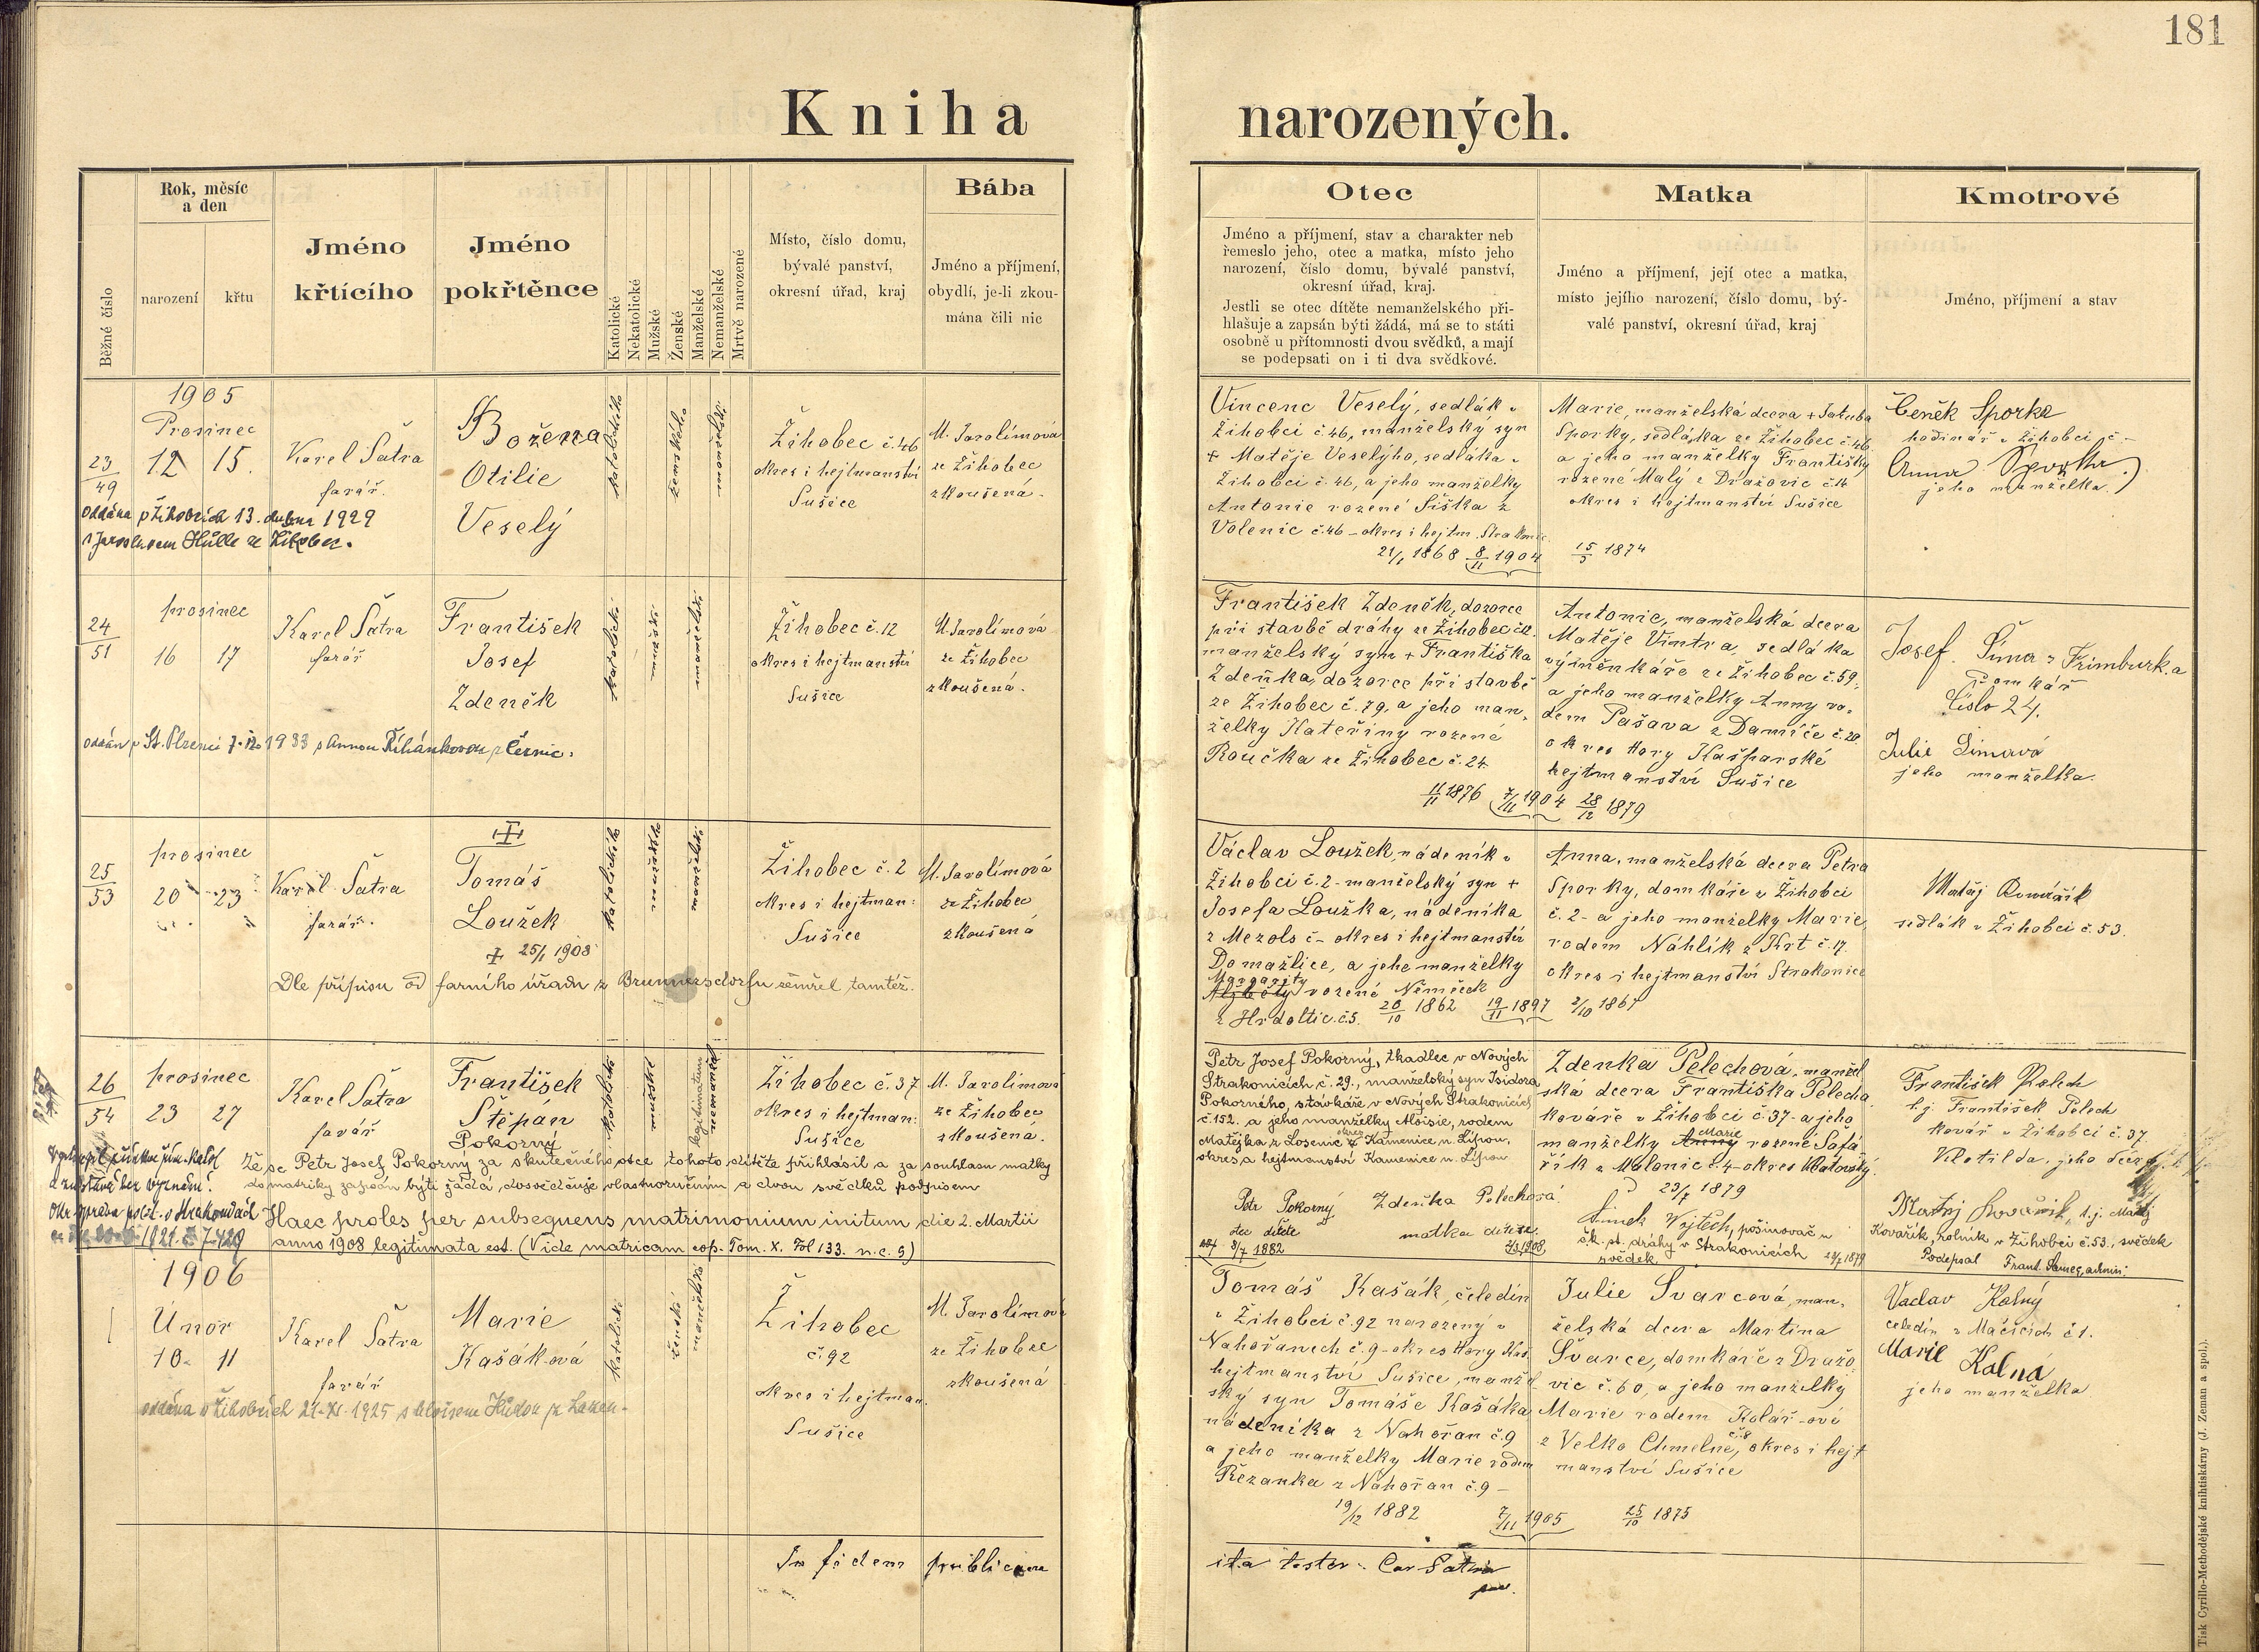 181
Kniha narozených.
Běžné číslo
Rok, měsíc
a den
narození
křtu
Jméno
křtícího
Jméno
pokřtěnce
Katolické
Nekatolické
Mužské
Ženské
Manželské
Nemanželské
Mrtvě narozené
Místo, číslo domu,
bývalé panství,
okresní úřad, kraj
Bába
Jméno a příjmení,
obydlí, je-li zkou-
mána čili nic
Otec
Jméno a příjmení, stav a charakter neb
řemeslo jeho, otec a matka, místo jeho
narození, číslo domu, bývalé panství,
okresní úřad, kraj.
Jestli se otec dítěte nemanželského při-
hlašuje a zapsán býti žádá, má se to státi
osobně u přítomnosti dvou svědků, a mají
se podepsati on i ti dva svědkové.
Matka
Jméno a příjmení, její otec a matka,
místo jejího narození, číslo domu, bý-
valé panství, okresní úřad, kraj
Kmotrové
Jméno, příjmení a stav
1905
Prosinec
23
49
12 15.
Karel Šatra
farář.
Božena
Otilie
Veselý
Žihobec č.46
okres i hejtmanství
Sušice
M. Jarolímová
ze Žihobec
zkoušená.
oddána v Žihobcích 13. dubna 1929
s Jaroslavem Hülle ze Žihobec.
Vincenc Veselý, sedlák v
Žihobci č.46, manželský syn
+ Matěje Veselýho, sedláka v
Žihobci č.46, a jeho manželky
Antonie rozené Šiška z
Volenic č.46 - okres i hejtm. Strakonic
21/1 1868 8/11 1904
Marie, manželská dcera + Jakuba
Sporky, sedláka ze Žihobec č.46
a jeho manželky Františky
rozené Malý z Dražovic č.14
okres i hejtmanství Sušice
15/5 1874
Čeněk Sporka
hodinář v Žihobci č. -
Anna Sporka
jeho manželka.
24
51
prosinec
16 17
Karel Šatra
farář
František
Josef
Zdeněk
Žihobec č.12
okres i hejtmanství
Sušice
M. Jarolímová
ze Žihobec
zkoušená.
oddán v St. Plzenci 1933 s Annou Říhánkovou z Černic.
František Zdeněk, dozorce
při stavbě dráhy ze Žihobec č.12.
manželský syn + Františka
Zdeňka, dozorce při stavbě
ze Žihobec č.79, a jeho man-
želky Kateřiny rozené
Roučka ze Žihobec č.24
11/11 1876 7/11 1904
Antonie, manželská dcera
Matěje Vintra, sedláka
výměnkáře ze Žihobec č.59,
a jeho manželky Anny ro-
dem Pašava z Damíče č.20
okres Hory Kašparské
hejtmanství Sušice
28/12 1879
Josef Šima z Frimburka
Domkář
Číslo 24.
Julie Šimová
jeho manželka.
25
53
prosinec
20 23
Karel Šatra
farář.
Tomáš
Loužek
+ 25/1 1908
Žihobec č.2
okres i hejtman:
Sušice
M. Jarolímová
ze Žihobec
zkoušená
Dle přípisu od farního úřadu z Brunnersdorfu zemřel tamtéž.
Václav Loužek, nádeník v
Žihobci č.2 - manželský syn +
Josefa Loužka, nádeníka
z Mezols č - okres i hejtmanství
Domažlice, a jeho manželky
Margarity
Alžběty rozené Němeček
z Hrdoltic.č.5. 20/10 1862 19/11 1897
Anna, manželská dcera Petra
Sporky, domkáře v Žihobci
č.2 - a jeho manželky Marie
rodem Náhlík z Krt č.17.
okres i hejtmanství Strakonice
2/10 1867
Matěj Kovářík
sedlák v Žihobci č.53.
26
54
prosinec
23 27
Karel Šatra
farář
František
Štěpán
Pokorný
Žihobec č.37
okres i hejtman:
Sušice
M. Jarolímová
ze Žihobec
zkoušená.
Že se Petr Josef Pokorný za skutečného otce tohoto dítěte přihlásil a za souhlasu matky
do matriky zapsán býti žádá, dosvědčuje vlastnoručním a dvou svědků podpisem
Haec proles per subsequens matrimonium initum die 2. Martii
anno 1908 legitimata est. (Vide matricam cop. Tom. X. Fol 133. n.c. 5)
Petr Josef Pokorný, tkadlec v Nových
Strakonicích č. 29., manželský syn Isidora
Pokorného, stávkaře v Nových Strakonicích
č.152. a jeho manželky Aloisie, rodem
Matějka z Losenic Kamenice n. Lípou,
okres a hejtmanství Kamenice n. Lípou
Petr Pokorný
otec dítěte
3/7 1882
Zdeňka Pelechová
matka dítěte.
2/3 1908
Zdenka Pelechová, manžel
ská dcera Františka Pelecha
kováře v Žihobci č.37 - a jeho
Marie
manželky Anny rozené Šafá
řík z Malonic č.4 - okres Klatovský.
23/7 1879
Šimek Vojtěch, pošinovač u
čk. st. dráhy v Strakonicích
svědek
František Pelech
t.j. František Pelech
kovář v Žihobci č. 37.
Klotilda, jeho dcera
Matěj Kovařík, t.j. Matěj
Kovařík, rolník v Žihobci č.53., svědek
Podepsal Frant. Samec, admin:
1906
1
Únor
10. 11
Karel Šatra
farář
Marie
Kašáková
Žihobec
č.92
okres i hejtman.
Sušice
M. Jarolímová
ze Žihobec
zkoušená
Tomáš Kašák, čeledín
v Žihobci č.92 narozený v
Nahořanech č.9 - okres Hory Kaš.
hejtmanství Sušice, manžel
ský syn Tomáše Kašáka
nádeníka z Nahořan č.9
a jeho manželky Marie rodem
Řezanka z Nahořan č.9 -
19/12 1882 7/11 1905
Julie Švarcová, man-
želská dcera Martina
Švarce, domkáře z Dražo-
vic č.60, a jeho manželky
Marie rodem Kolář-ové
z Velko Chmelné, č.8 okres i hejt
manství Sušice
25/10 1875
Vaclav Kalný
čeledín z Mačicích č1.
Marie Kalná
jeho manželka
In fidem publicam
ita testor: Car Šatra